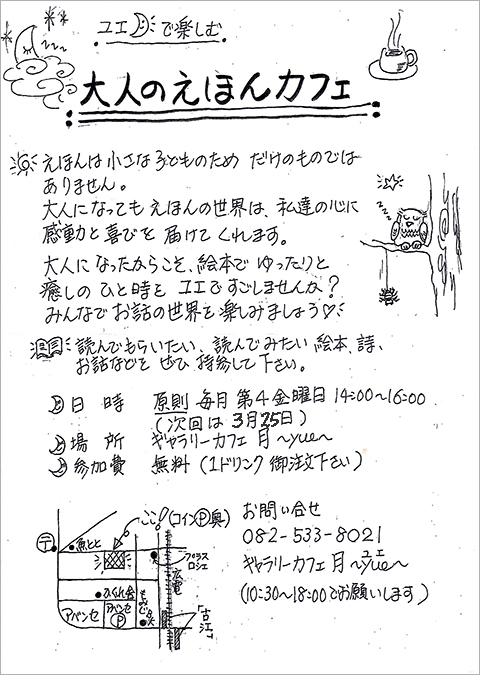 ユエ で楽しむ
大人のえほんカフェ
えほんは小さな子どものため だけのものでは
ありません。
大人になっても えほんの世界は、私達の心に
感動と喜びを 届けて くれます。
大人に なったからこそ、絵本で ゆったりと
癒しの ひと時を ユエで すごしませんか?
みんなで お話の世界を 楽しみましょう♡
読んでもらいたい、読んでみたい 絵本、詩、
お話などを ぜひ 持参して 下さい。
日 時 原則 毎月 第4金曜日 14:00~16:00
(次回は 3月25日)
場 所 ギャラリーカフェ 月 ~yue~
参加費 無料 (1ドリンク 御注文下さい)
ここ! (コインⓅ奥)
〒
魚とと
プラス
ロシェ
広電
アバンセ
アバンセ
Ⓟ
「古江」
お問い合せ
082-533-8021
ギャラリーカフェ 月 ~yue~
ユエ
(10:30~18:00でお願いします)